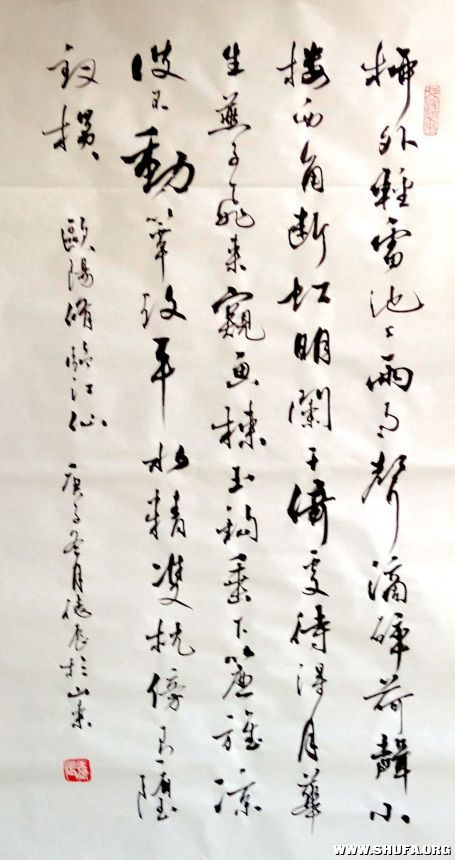 柳外輕雷池上雨々聲滴碎荷聲小
樓西角断虹明闌干倚處待得月華
生燕子飛來窺畫棟玉鉤垂下簾旌涼
波不動簟紋平水精雙枕傍有墮
釵橫
歐陽脩臨江仙 庚子冬月於山東
WWW.SHUFA.ORG